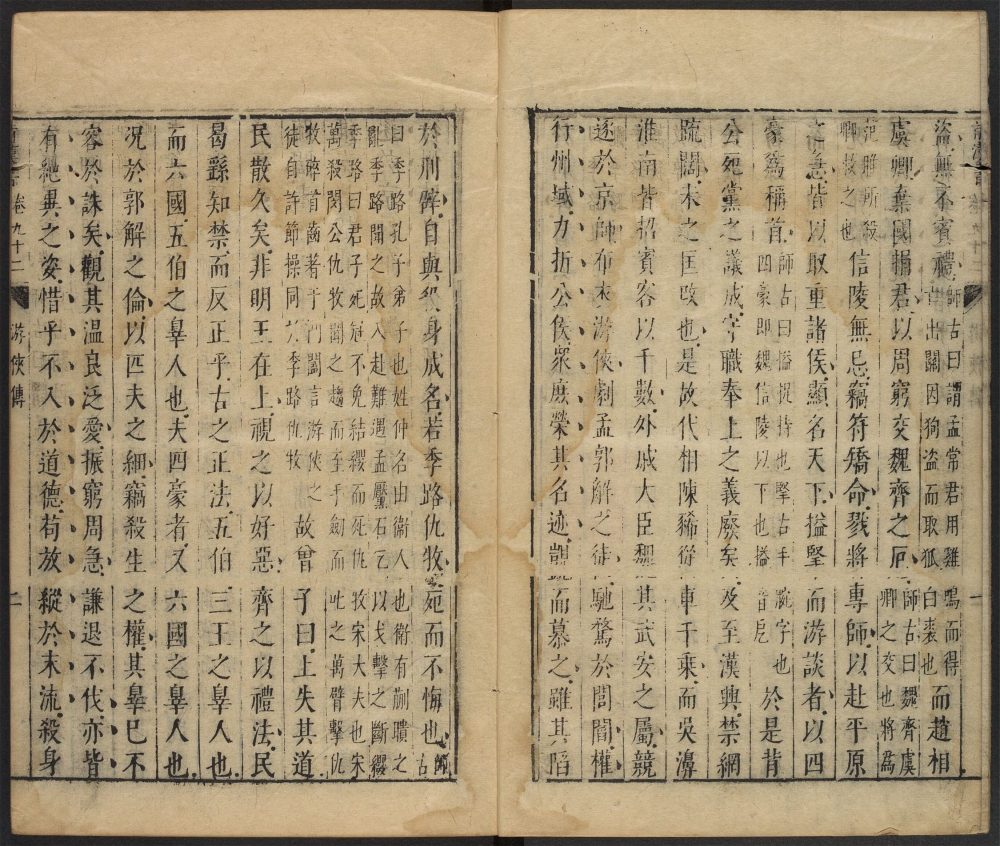 盜無不賓禮師古曰謂孟常君用雞鳴而得亡出關因狗盜而取狐白裘也而趙相
虞卿棄國捐君以周窮交魏齊之厄師古曰魏齊虞卿之交也將爲
范雎所殺卿救之也信陵無忌竊符矯命戮將專師以赴平原
之急皆以取重諸侯顯名天下搤掔而游談者以四
豪爲稱首師古曰搤捉持也掔古手腕字也四豪即魏信陵以下也搤音戹於是背
公死黨之議成守職奉上之義廢矣及至漢興禁網
疏闊未之匡改也是故代相陳豨從車千乘而吳濞
淮南皆招賓客以千數外戚大臣魏其武安之屬競
逐於京師布衣游俠劇孟郭解之徒馳騖於閭閻權
行州域力折公侯衆庶榮其名迹覬而慕之雖其陷
於刑辟自與殺身成名若季路仇牧死而不悔也師古
曰季路孔子弟子也姓仲名由衞人也衞有蒯聵之亂季路聞之故入赴難遇孟黶石乞以戈擊之斷纓
季路曰君子死冠不免結纓而死仇牧宋大夫也宋萬殺閔公仇牧聞之趨而至手劔而叱之萬臂擊仇
牧碎首齒著于門闔言游俠之徒自許節操同於季路仇牧故曾子曰上失其道
民散久矣非明王在上視之以好惡齊之以禮法民
曷繇知禁而反正乎古之正法五伯三王之辠人也
而六國五伯之辠人也夫四豪者又六國之辠人也
况於郭解之倫以匹夫之細竊殺生之權其辠已不
容於誅矣觀其温良泛愛振窮周急謙退不伐亦皆
有絶異之姿惜乎不入於道德苟放縱於末流殺身
卷九十二 游俠傳 二